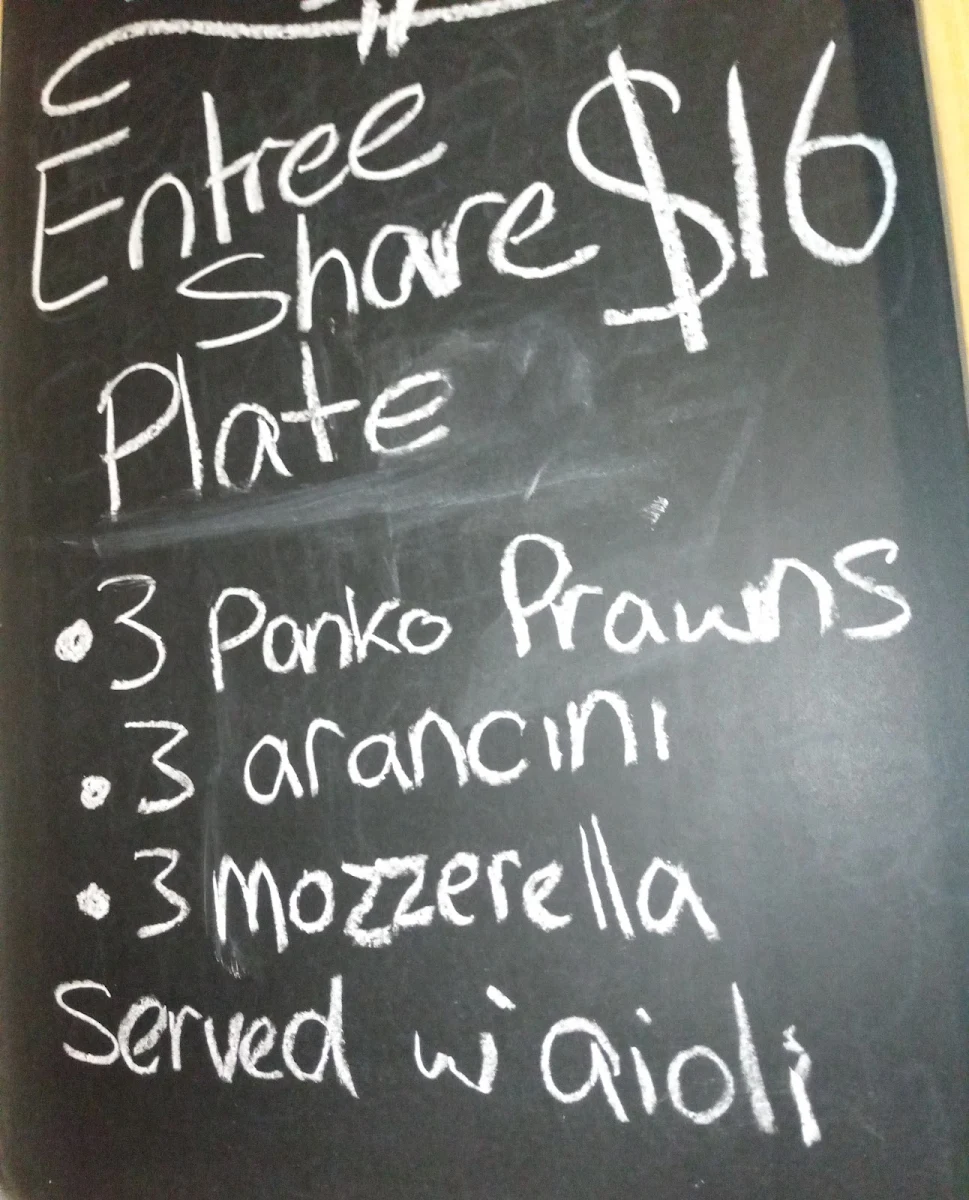 Entree $16
Share
Plate
• 3 Panko Prawns
• 3 arancini
• 3 Mozzerella
Served w' aioli